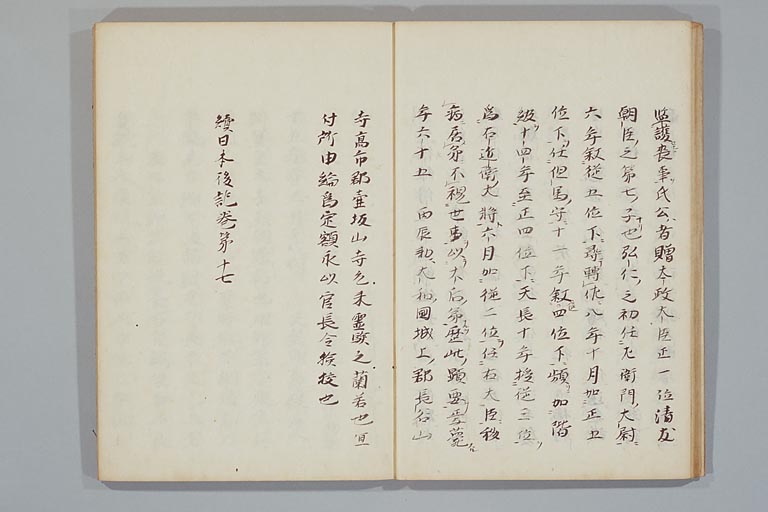 監護喪事氏公者贈太政大臣正一位清友
朝臣之第七子也弘仁之初任左衛門大尉
六年叙従五位下尋轉佐八年十月加正五
位下任但馬守十一年叙四位下頻加階
級十四年至正四位下天長十年授従三位
為右近衛大将六月加従二位任右大臣移
病居第不視世事以太后弟歴此顕要焉薨
年六十五 丙辰勅大和國城上郡長谷山
寺高市郡壷坂山寺元来霊験之蘭若也宜
付所由編為定額永以官長令検校也
續日本後記巻第十七